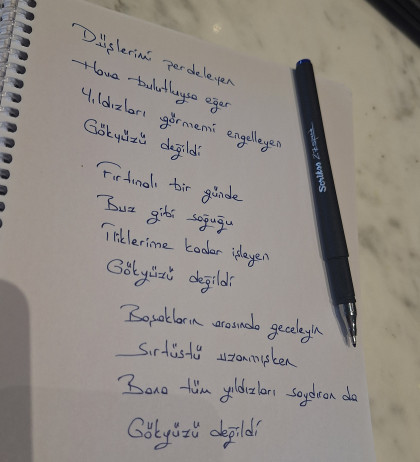 Düşlerimi perdeleyen
Hava bulutluysa eğer
Yıldızları görmemi engelleyen
Gökyüzü değildi
Fırtınalı bir günde
Buz gibi soğuğu
İliklerime kadar işleyen
Gökyüzü değildi
Başakların arasında geceleyin
Sırtüstü uzanmışken
Bana tüm yıldızları saydıran da
Gökyüzü değildi
Scrikss